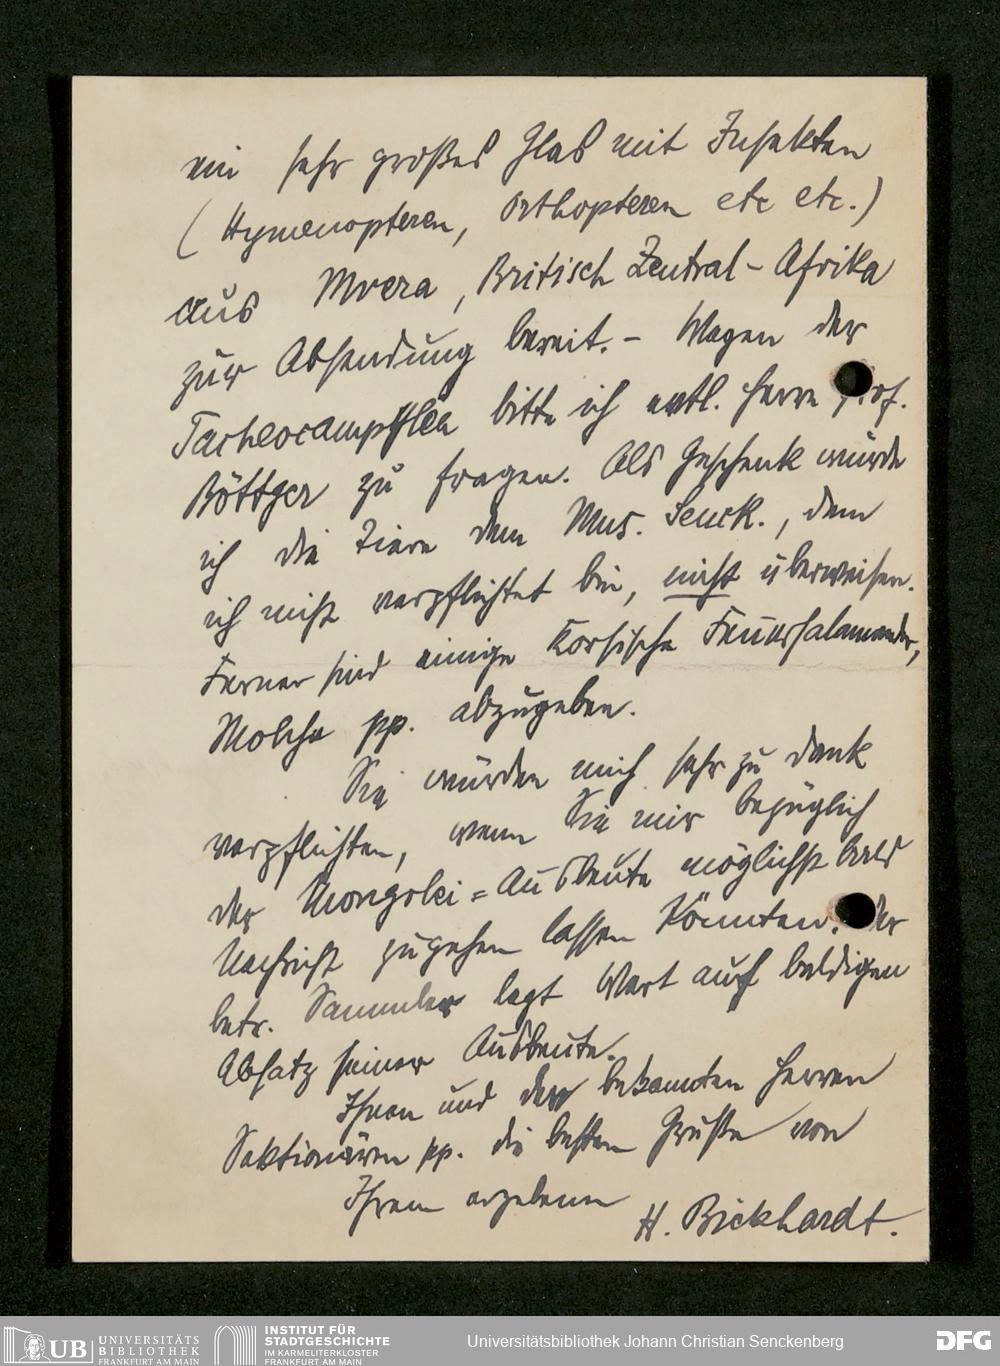 ein sehr großes Glas mit Insekten
(Hymenopteren, Orthopteren etc etc.)
aus Mvera, Britisch Zentral-Afrika
zur Absendung bereit. – Wegen der
bitte ich evtl. Herrn Prof.
Böttger zu fragen. Als Geschenk würde
ich die Tiere dem Mus. Senck., dem
ich nicht verpflichtet bin, nicht überweisen.
Ferner sind einige Korsische Feuersalamander,
Molche pp. abzugeben.
Sie würden mich sehr zu Dank
verpflichten, wenn Sie mir bezüglich
der Mongolei=Ausbeute möglichst bald
Nachricht zugehen lassen könnten. Der
betr. Sammler legt Wert auf baldigen
Absatz seiner Ausbeute.
Ihnen und den bekannten Herren
Sektionären pp. die besten Grüße von
Ihrem ergebenen
H. Bickhardt.
UB UNIVERSITÄTS
BIBLIOTHEK
FRANKFURT AM MAIN
INSTITUT FÜR
STADTGESCHICHTE
IM KARMELITERKLOSTER
FRANKFURT AM MAIN
Universitätsbibliothek Johann Christian Senckenberg
DFG